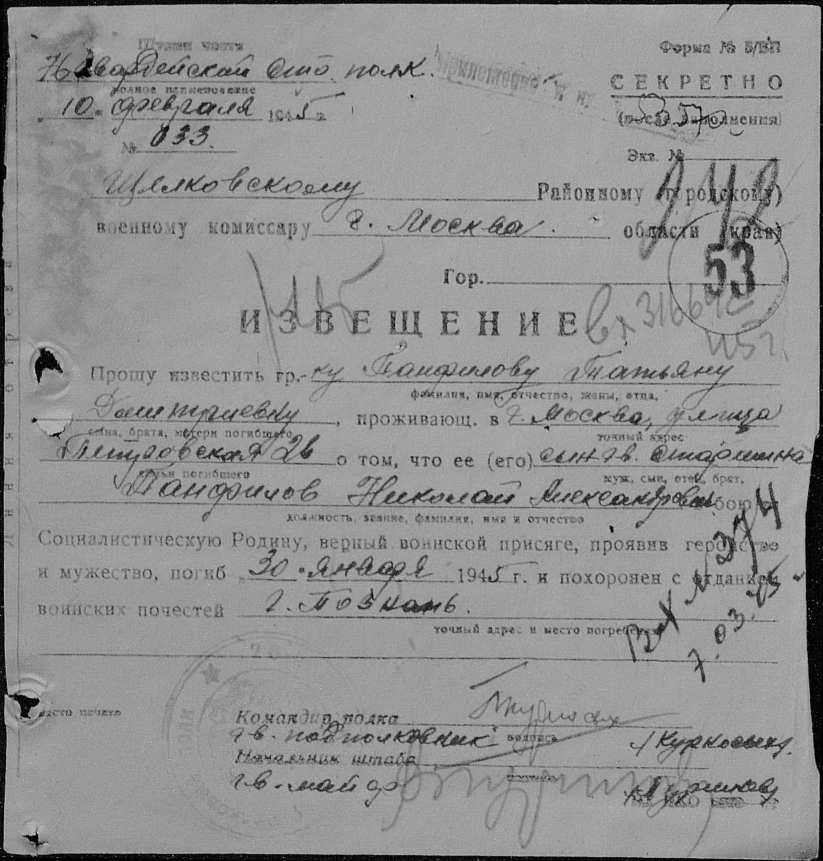 Штамп части
Форма № Б/ВП
76 Гвардейский отд. полк.
СЕКРЕТНО
полное наименование
(после заполнения)
"10" февраля 1945 г.
№ 033.
Экз. №
242
Щелковскому Районному (городскому)
военному комиссару г. Москва. области (края)
53
Гор.
ИЗВЕЩЕНИЕ
Вх 31669с
45 г.
Прошу известить гр.-ку Панфилову Татьяну
фамилия, имя, отчество, жены, отца,
Дмитриевну, проживающ. в г. Москва, улица
сына, брата, матери погибшего
точный адрес
26 о том, что ее (его) сын гв. старшина
семьи погибшего
муж, сын, отец, брат,
Панфилов Николай Александрович бою
должность, звание, фамилия, имя и отчество
Социалистическую Родину, верный воинской присяге, проявив геройство
и мужество, погиб "30" января 1945 г. и похоронен с отданием
воинских почестей г. Познань.
точный адрес и место погребения
Вх № 374
7.03.45
место печати
Командир полка
гв. подполковник
подпись
Начальник штаба
гв. майор